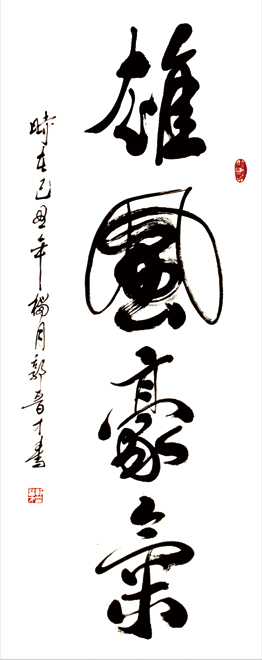 雄風豪氣
時在己丑年榴月郭晉才書